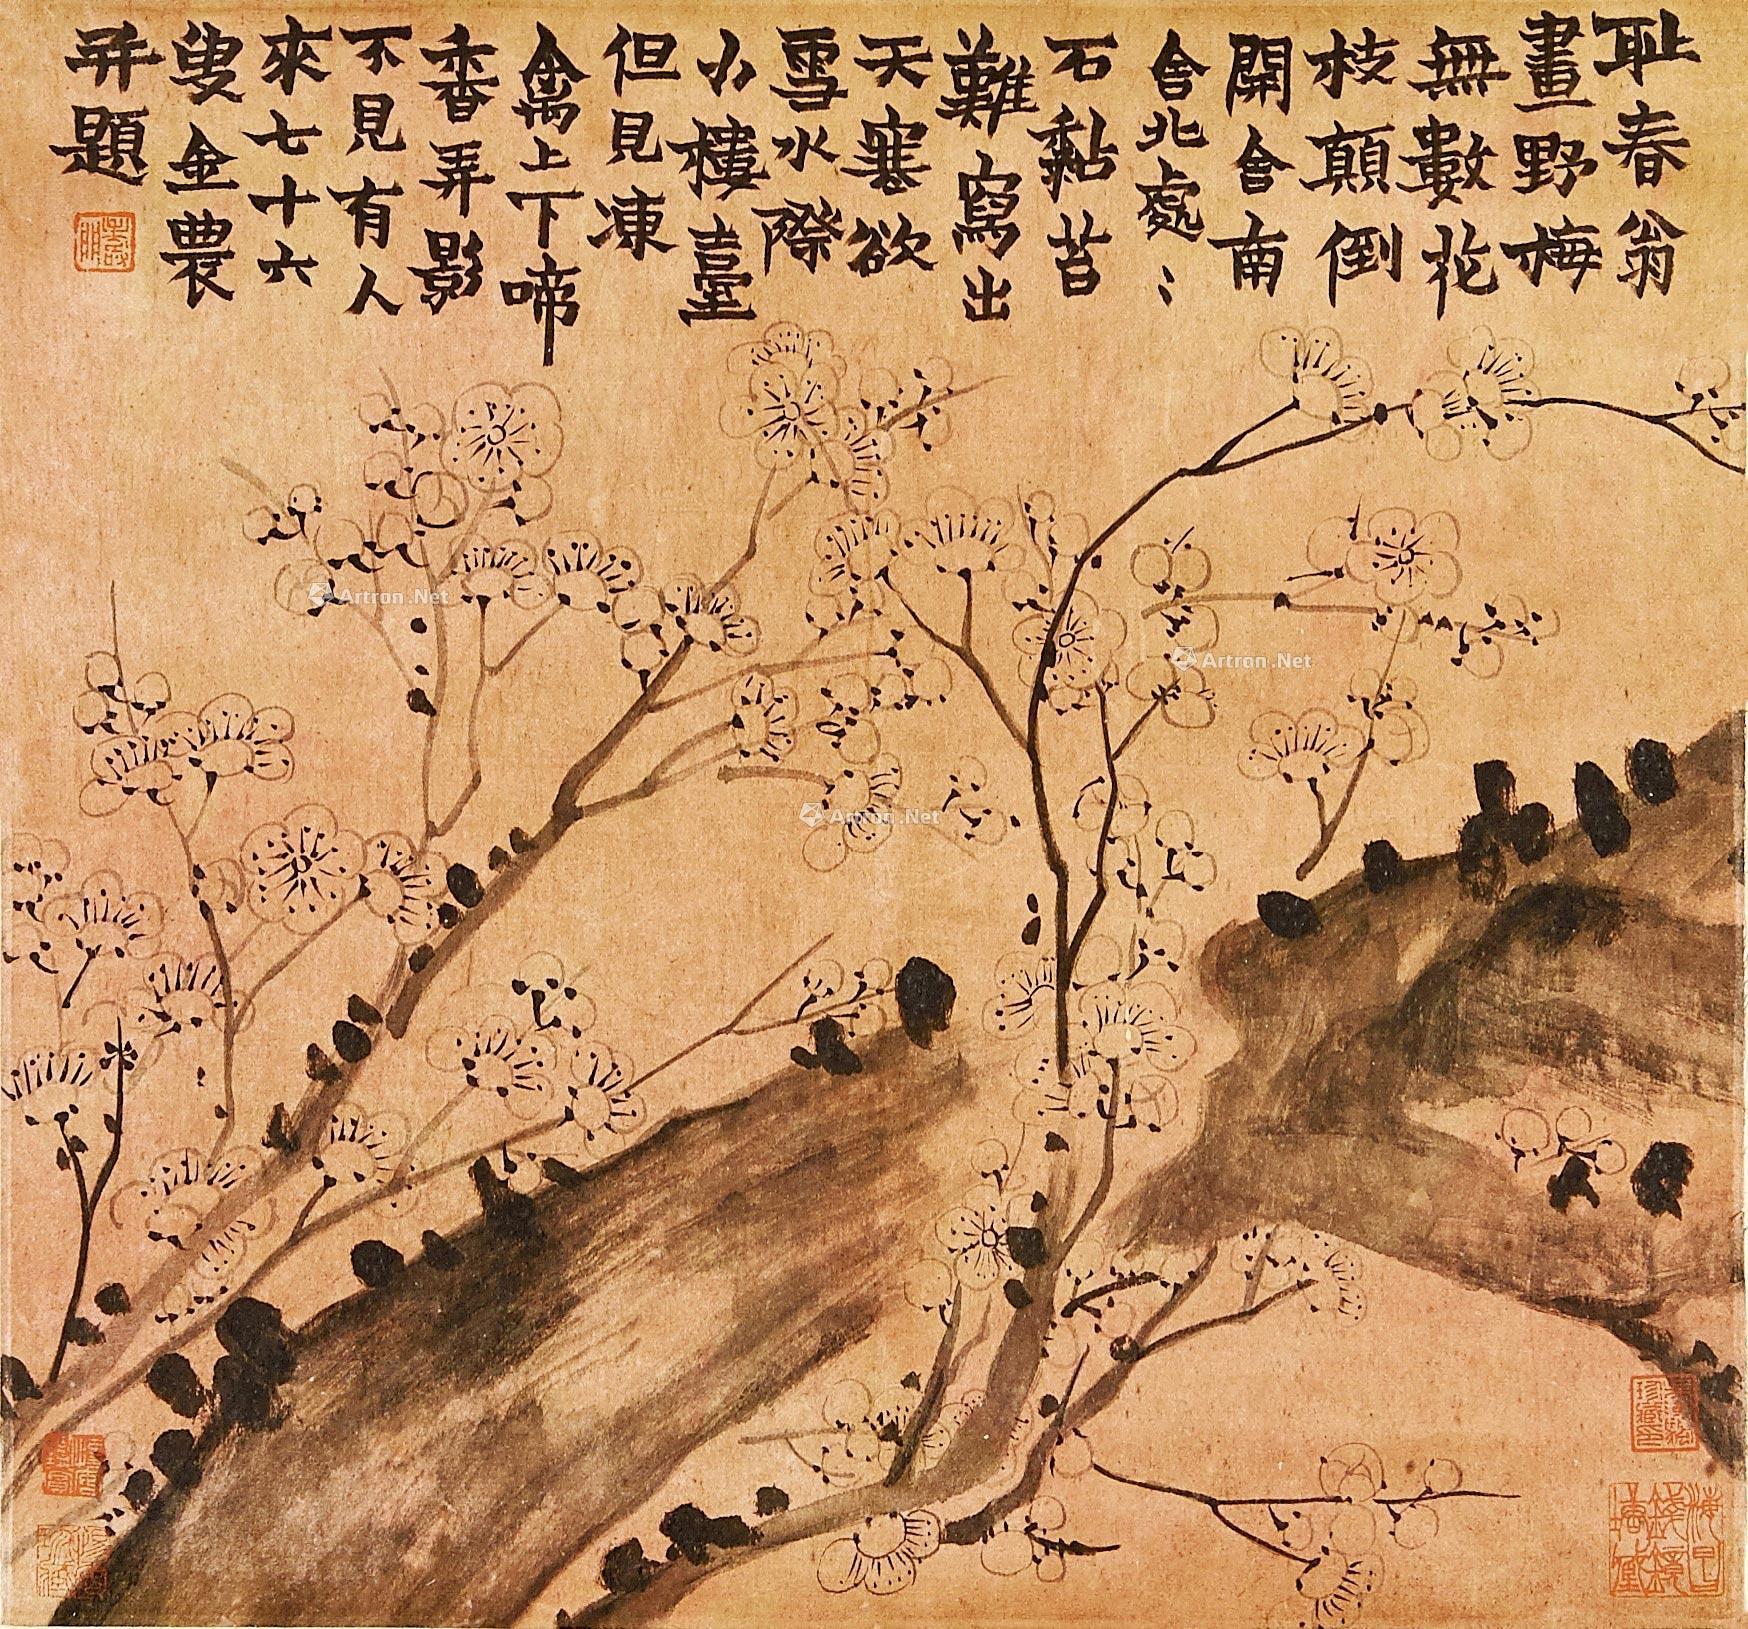 耻春翁
畫野梅
無數花
枝顛倒
開舍南
舍北處〻
石黏苔
難寫出
天寒欲
雪水際
小樓臺
但見凍
禽上下啼
香弄影
不見有人
來七十六
叟金農
并題
Artron.Net
Artron.Net
Artron.Net